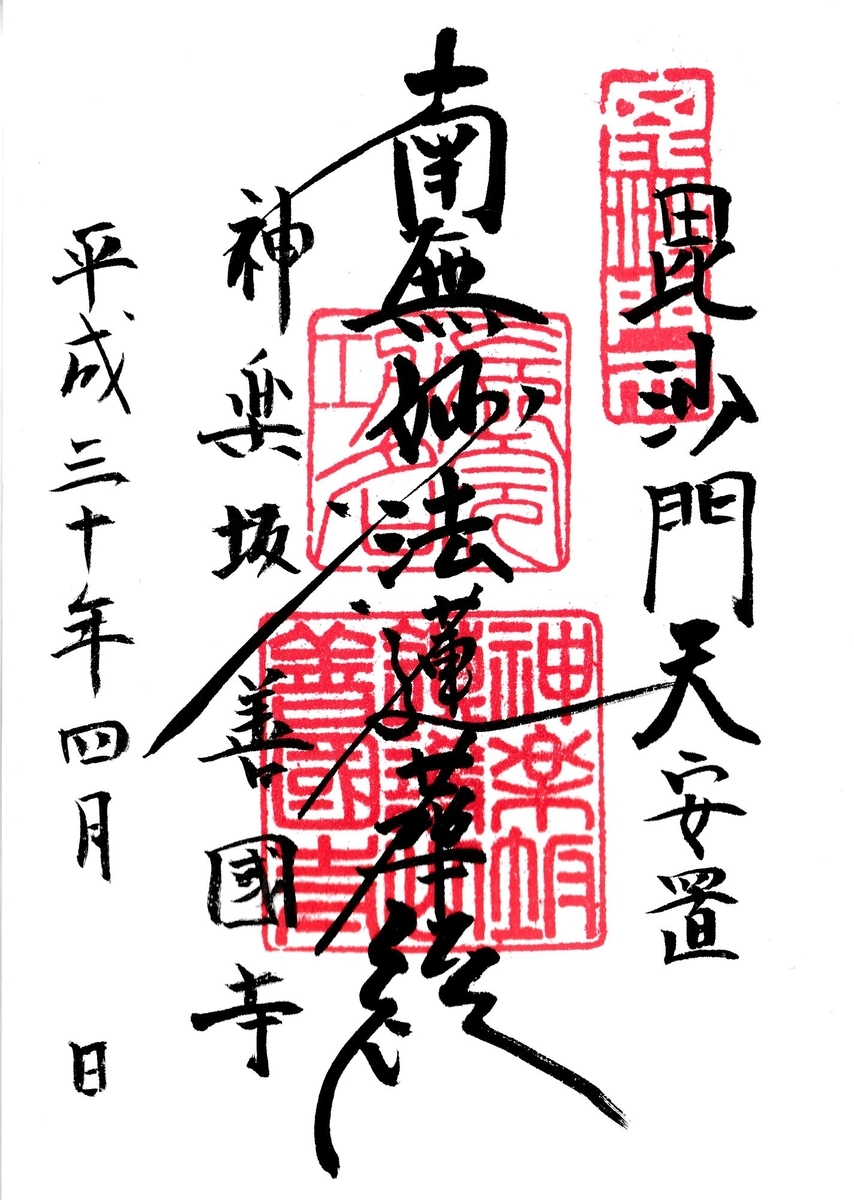 毘沙門天安置
南無妙法蓮華経
神楽坂善國寺
平成三十年四月 日
神楽坂
善國寺